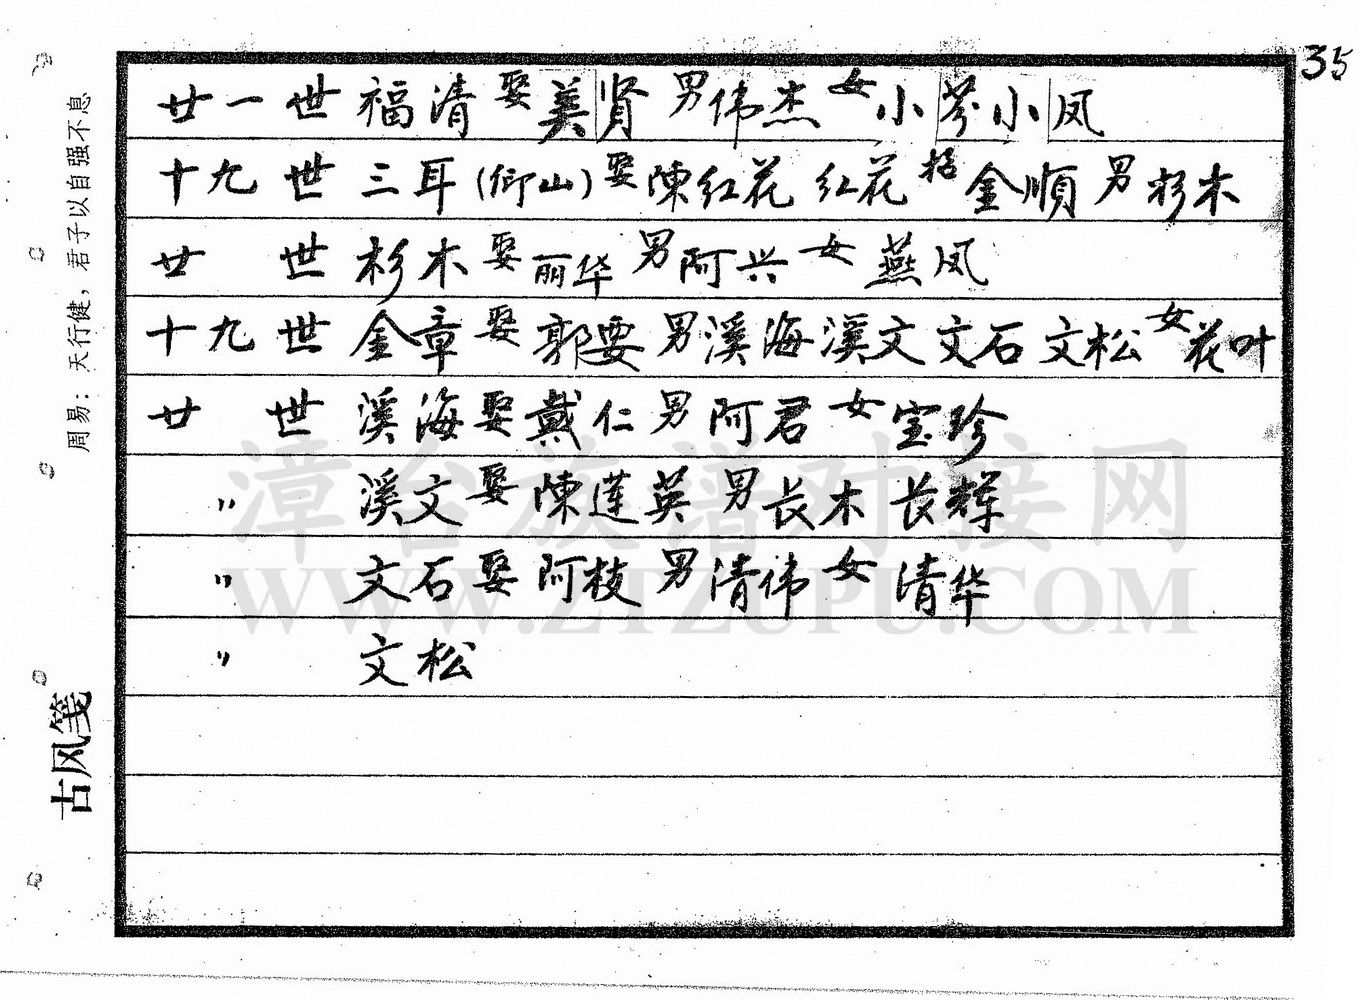 35
廿一世福清娶美贤男伟杰女小芬小凤
十九世三耳(仰山)娶陳红花 红花招金順男杉木
廿 世杉木娶丽华男阿兴女燕凤
十九世金章娶郭要男溪海溪文文石文松女花叶
廿 世溪海娶戴仁男阿君女宝珍
〃 溪文娶陳莲英男长木长辉
〃 文石娶阿枝男清伟女清华
〃 文松
周易：天行健，君子以自强不息
古风笺
漳台族谱对接网
WWW.ZTZUPU.COM